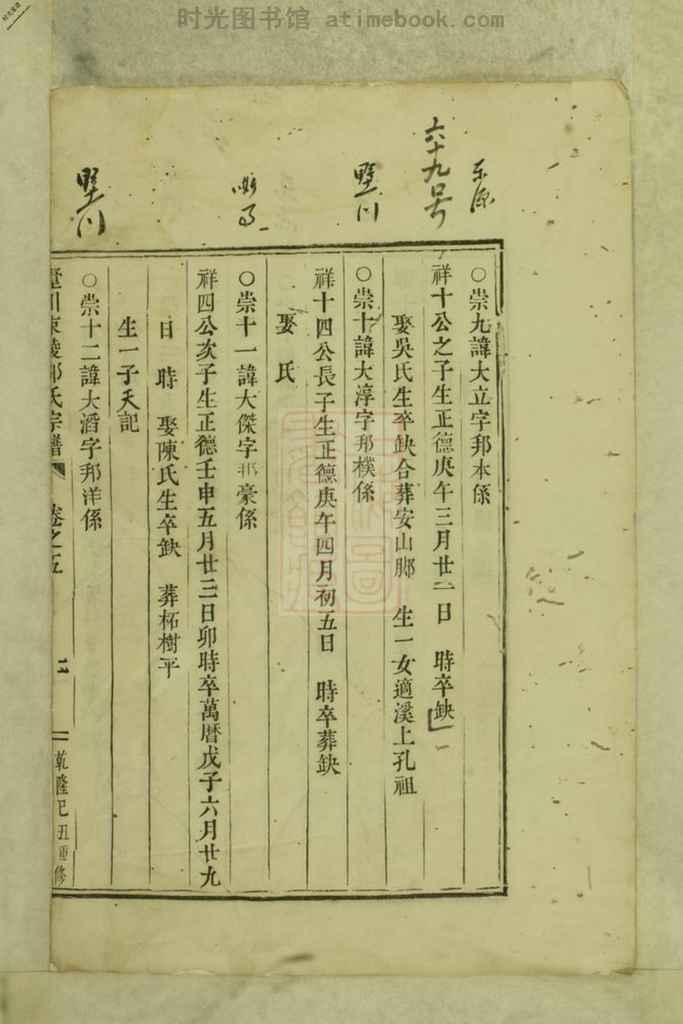 时光图书馆 atimebook.com
六十九号
〇崇九諱大立字邦本係
祥十公之子生正德庚午三月廿二日　時卒缺
娶吳氏生卒缺合葬安山脚　生一女適溪上孔祖
〇崇十諱大淳字邦樸係
祥十四公長子生正德庚午四月初五日　時卒葬缺
娶　氏
〇崇十一諱大傑字邦豪係
祥四公次子生正德壬申五月廿三日卯時卒萬曆戊子六月廿九
日　時　娶陳氏生卒缺　葬柘樹平
生一子天記
〇崇十二諱大滔字邦洋係
東陵邵氏宗譜　卷之五　二　乾隆己丑重修